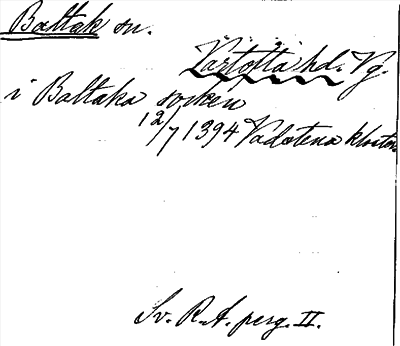 Baltak sn.
Vartofta hd. Vg.
i Baltaka soken
12/7 1394 Vadstena kloster
Sv. R. A. perg. II.